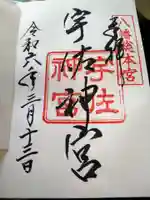 奉拝
八幡総本宮
宇佐神宮
宇佐
神宮
令和六年三月十三日